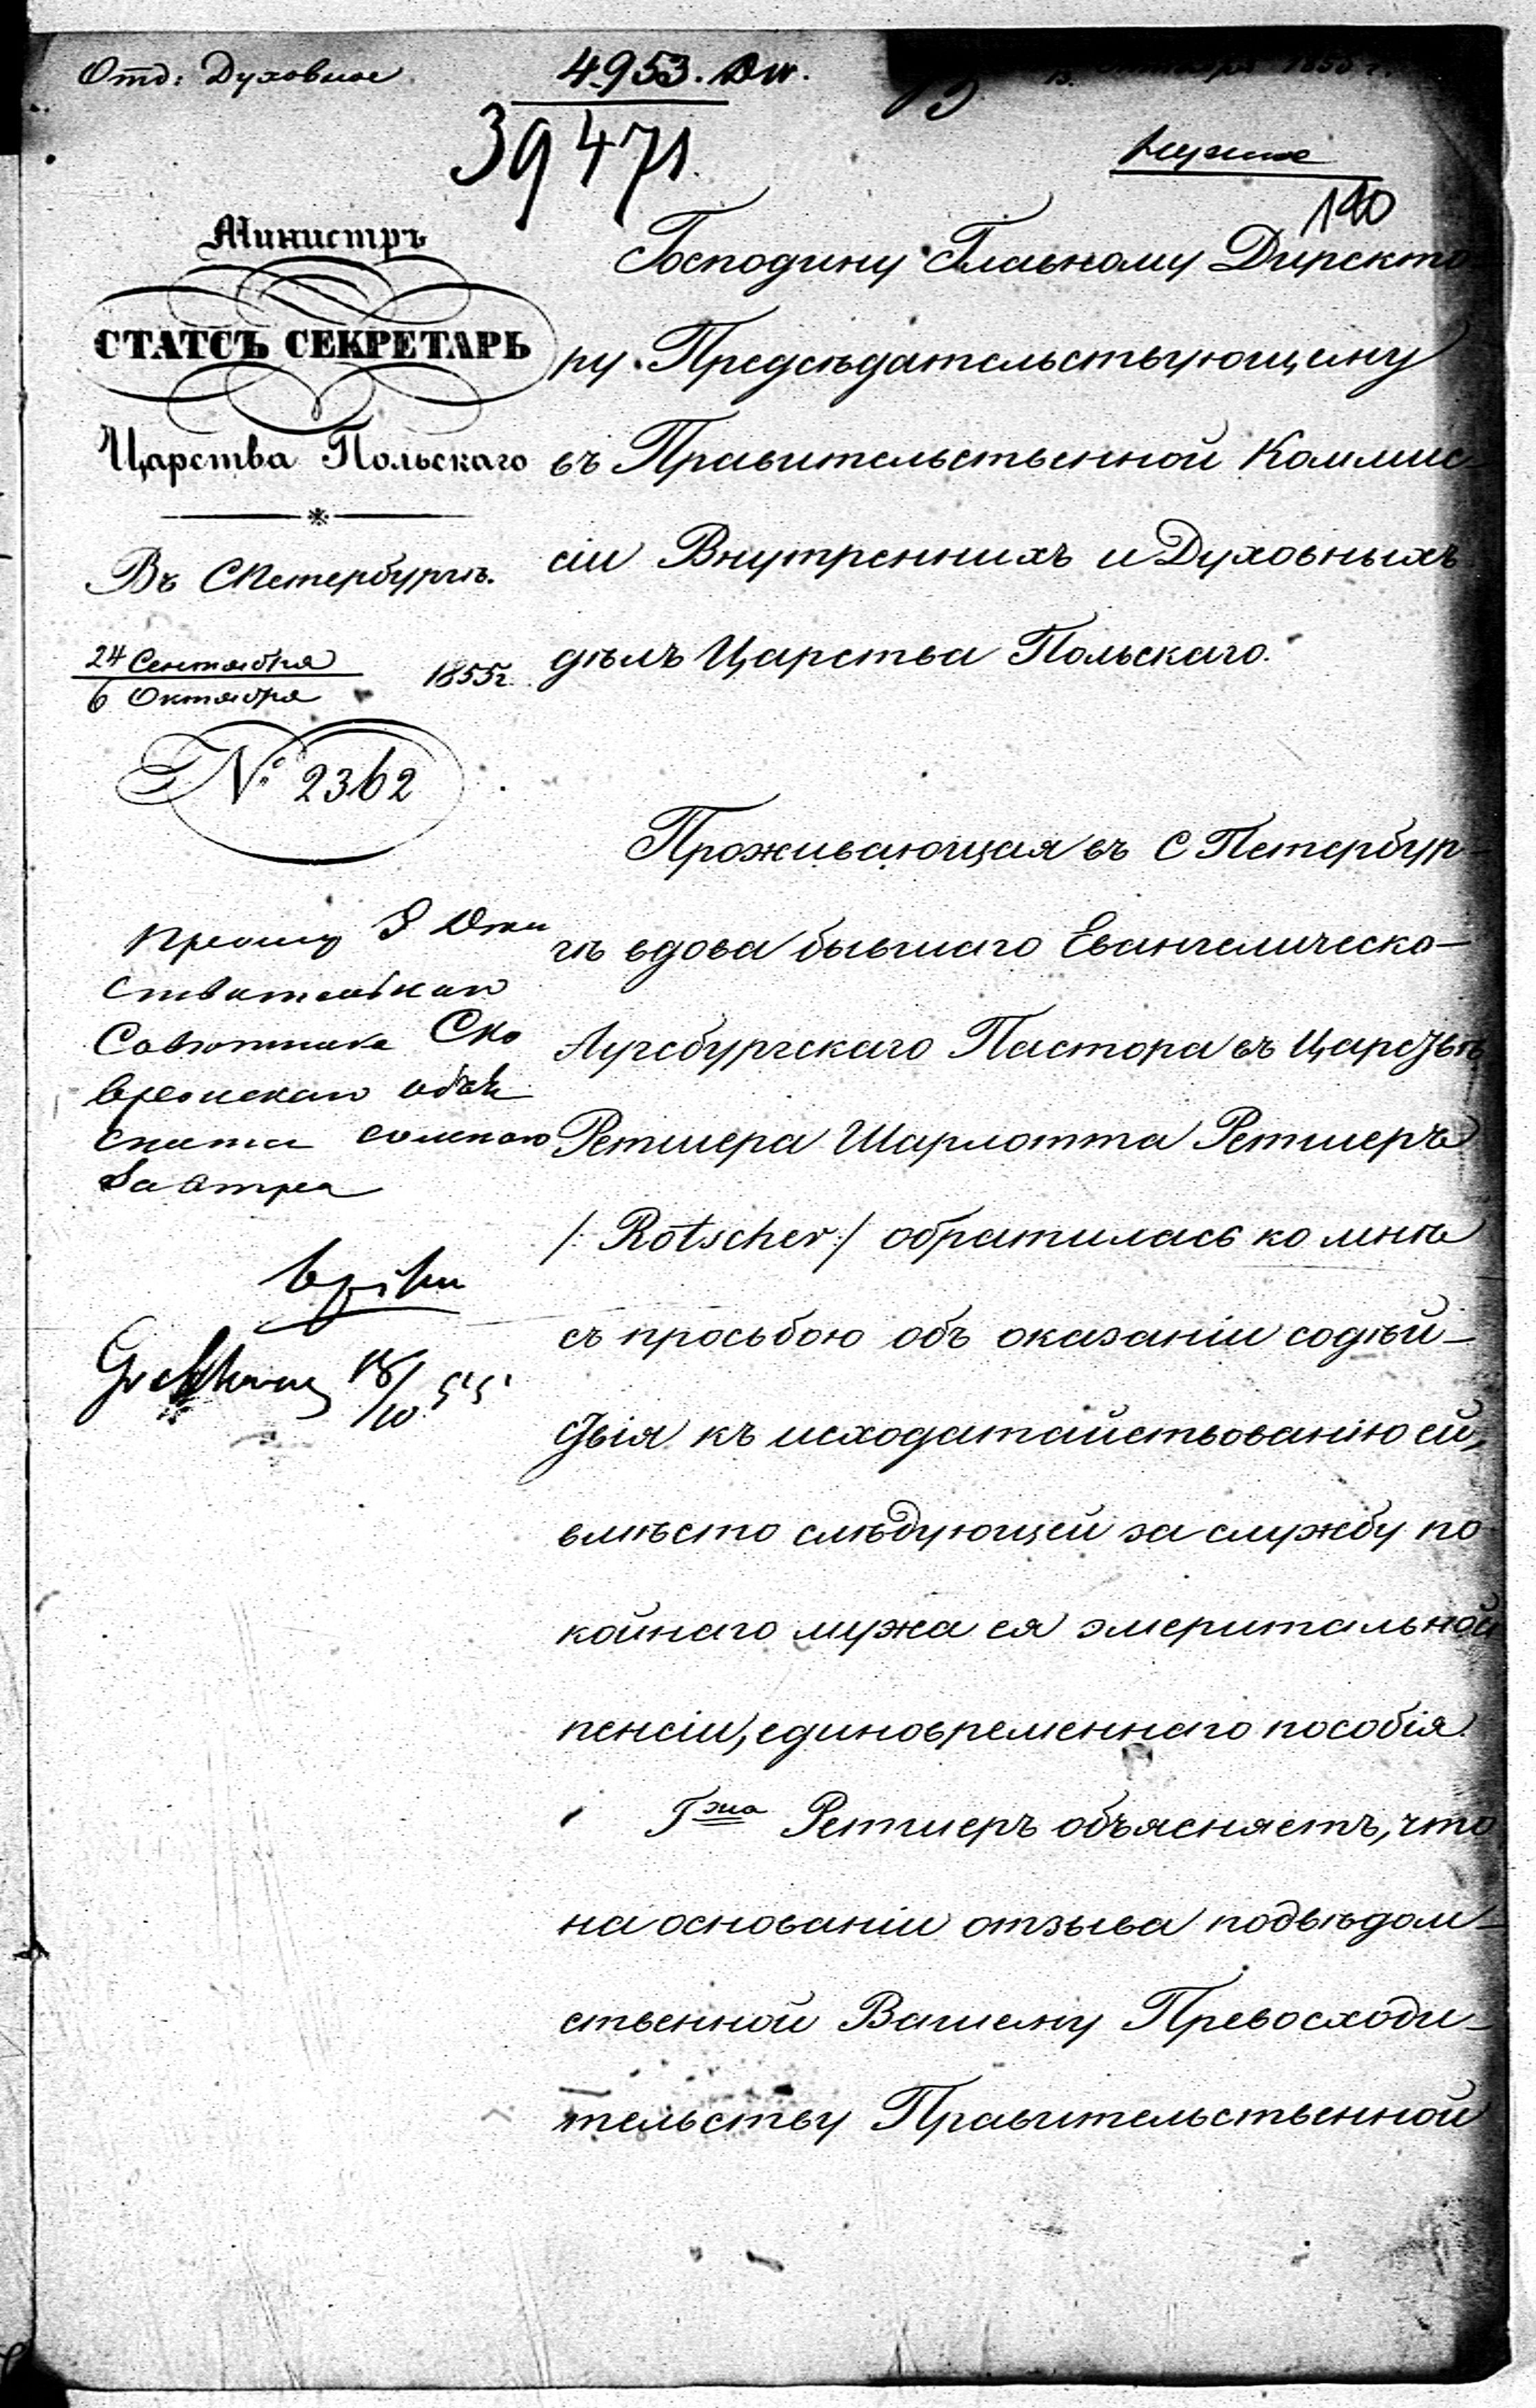 Отд: Духовное
4953. Dw.
39471.
Октября 1855 г.
нужное
190
Министръ
СТАТСЪ СЕКРЕТАРЬ
Царства Польскаго
Въ СПетербургѣ.
24 Сентября
6 Октября
1855 г.
№ 2362
Господину Главному Директо-
ру Предсѣдательствующему
въ Правительственной Коммис-
сіи Внутреннихъ и Духовныхъ
дѣлъ Царства Польскаго.
Прошу Г Дѣй
ствительнаго
Совѣтника Ско
вронскаго объя
снить со мною
завтра
18/10 55
Проживающая въ С Петербур-
гѣ вдова бывшаго Евангелическо-
Аугсбургскаго Пастора въ Царствѣ
Ретшера Шарлотта Ретшеръ
/: Rötscher :/ обратилась ко мнѣ
съ просьбою объ оказаніи содѣй-
ствія къ исходатайствованію ей,
вмѣсто слѣдующей за службу по
койнаго мужа ея эмеритальной
пенсіи, единовременнаго пособія.
Гжа Ретшеръ объясняетъ, что
на основаніи отзыва подвѣдом-
ственной Вашему Превосходи-
тельству Правительственной